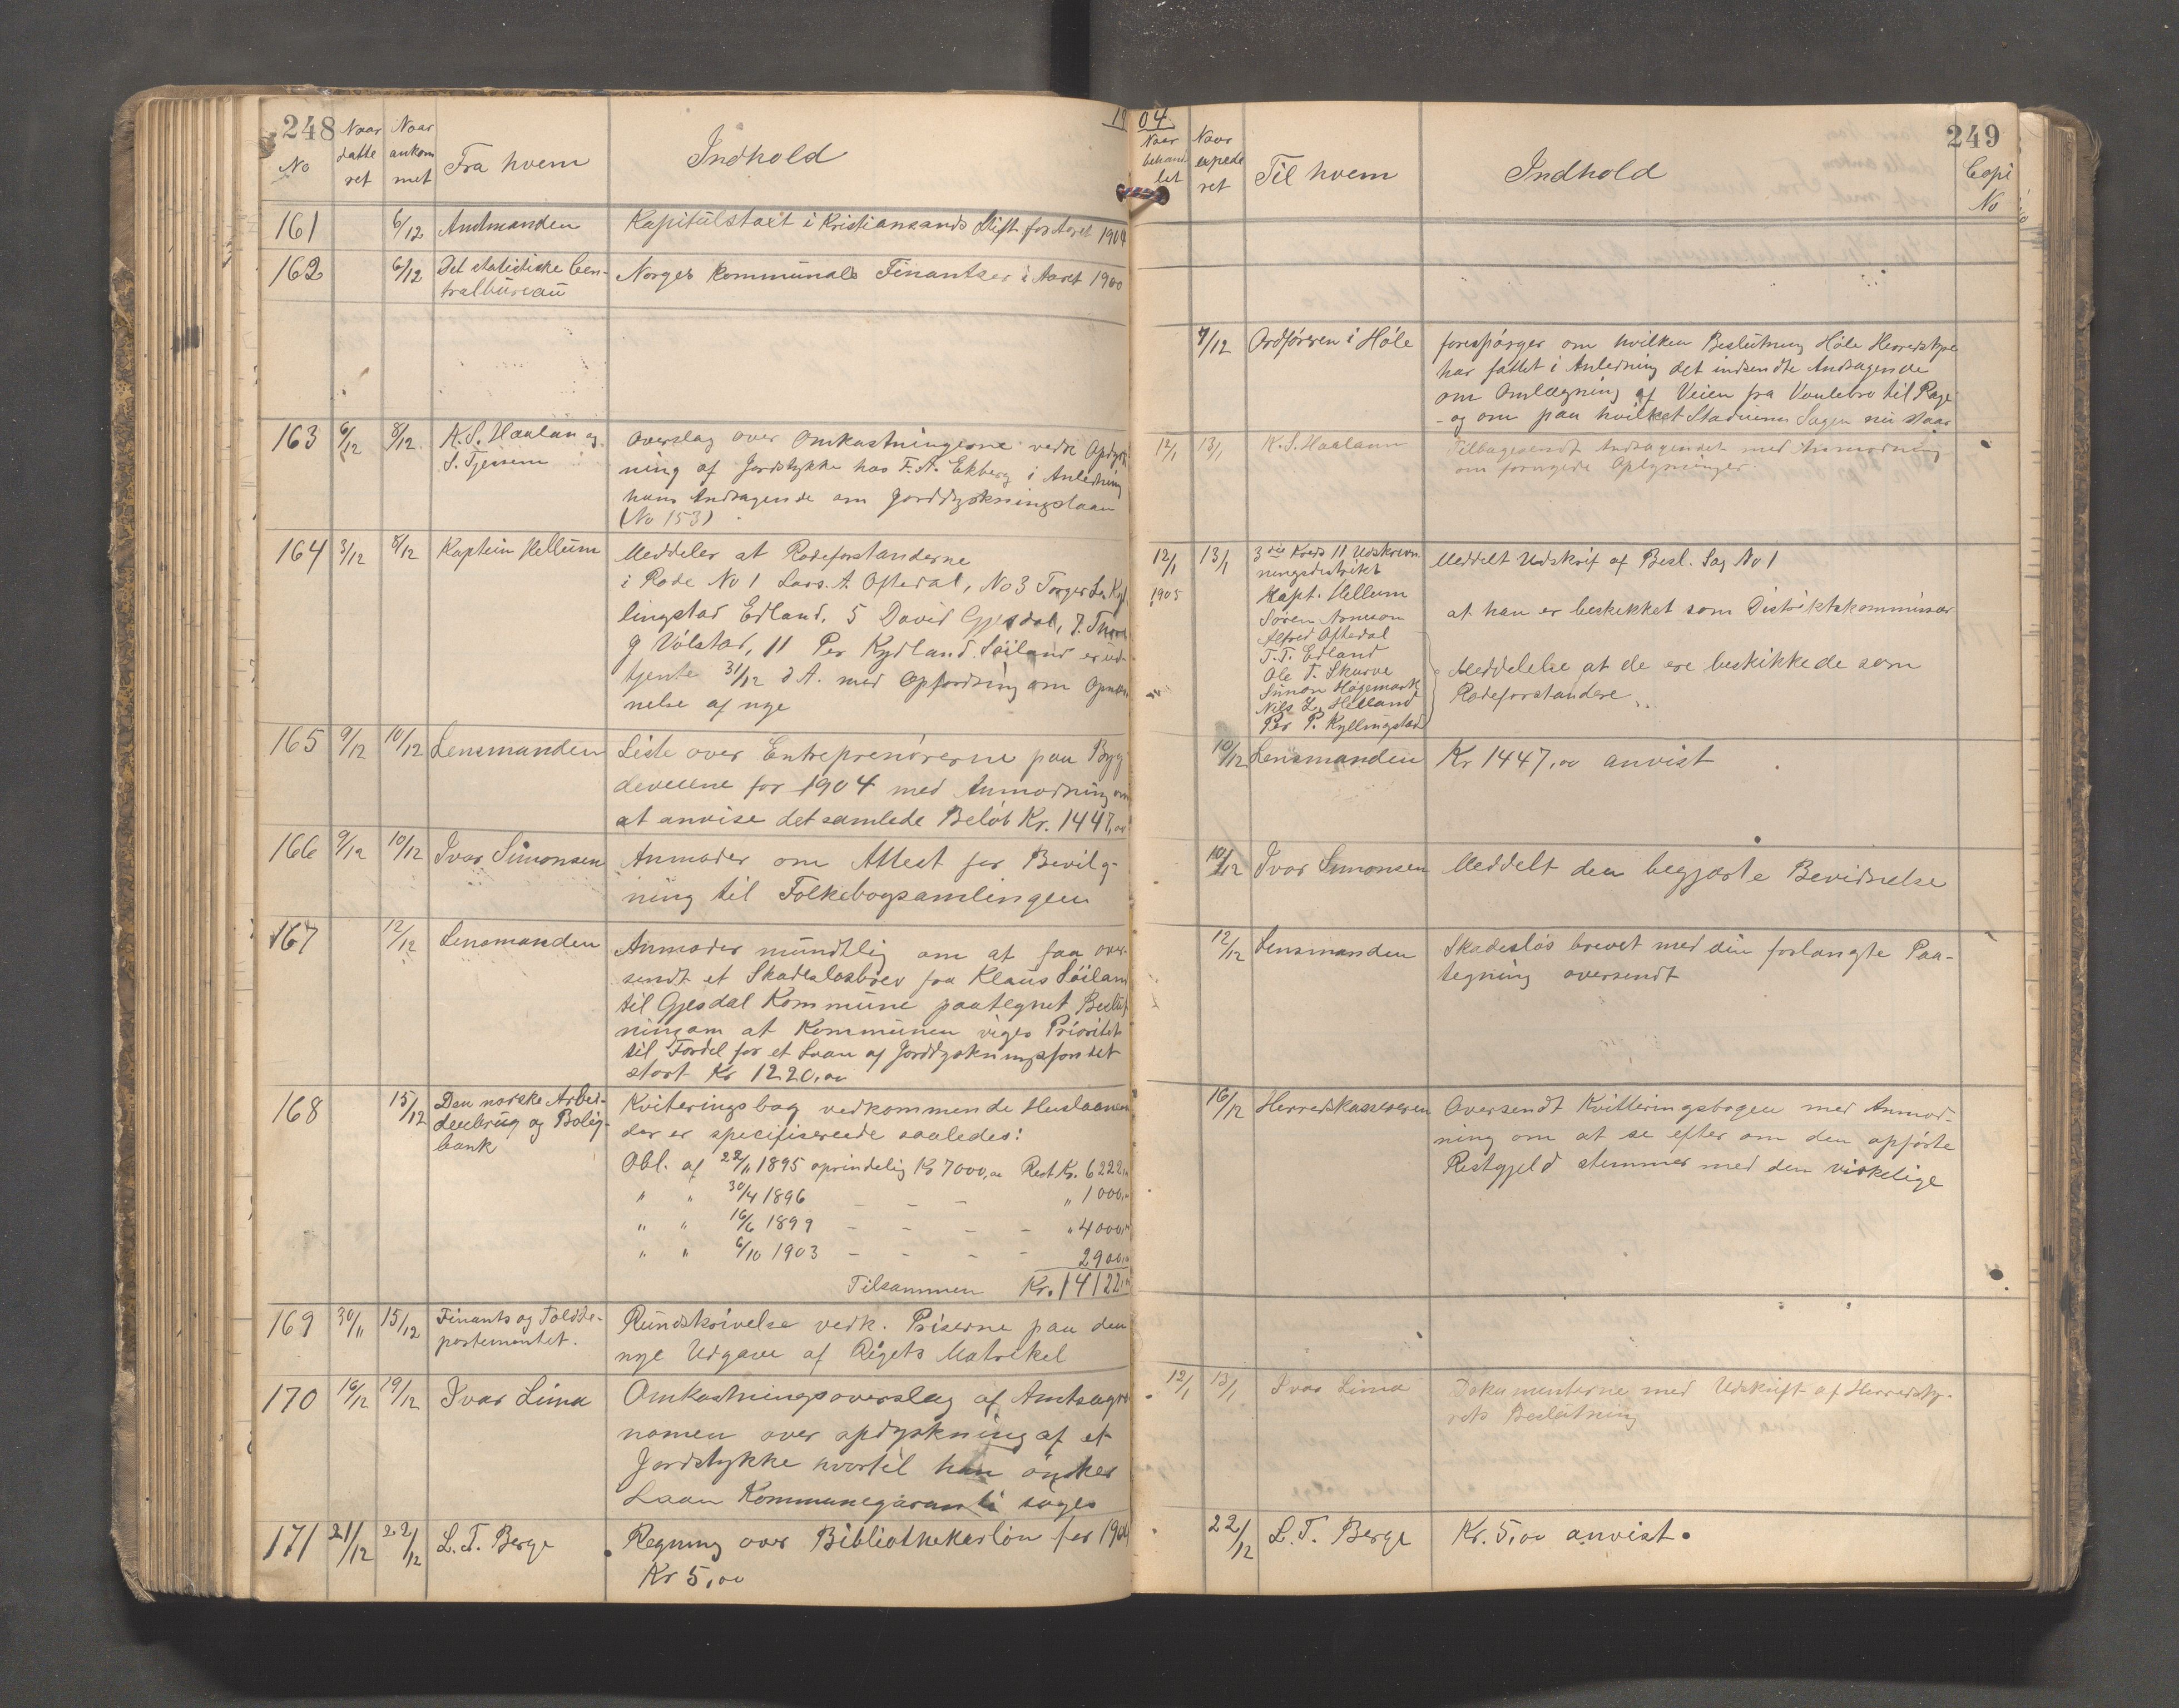 248
No
Naar datteret
Naar ankommet
Fra hvem
Indhold
19
161 6/12 Amtmanden Kapitülstaxt i Kristiansands Stift for Aaret 1904
162 6/12 Det statistiske Cen-
tralbüreaü
Norges kommunale Finantser i Aaret 1900
163 6/12 8/12 K. S. Haalan og
S. Tjessem
Overslag over Omkastningerne vedk Opdyrk
ning af Jordstykke hos F. A. Ekberg i Anledning
hans Andragende om Jorddyrkningslaan
(No 153)
164 3/12 8/12 Kaptein Hellum
Meddeler at Rodeforstanderne
i Rode No 1 Lars. A. Oftedal, No 3 Torger La Kyl
lingstad Edland, 5 David Gjesdal, 7.
9 Volstad, 11 Per Kydland Söiland er üd
tjente 31/12 d A. med Opfordring om Opnæv
nelse af nye
165 9/12 10/12 Lensmanden
Liste over Entreprenörerne paa Byg
deveiene for 1904 med Anmodning om
at anvise det samlede Belöb Kr. 1447,00
166 9/12 10/12 Ivar Simonsen
Anmoder om Attest for Bevilg-
ning til Folkebogsamlingen
167 12/12 Lensmanden
Anmoder mündtlig om at faa over-
sendt et Skadeslosbrev fra Klaus Söiland
til Gjesdal Kommüne paategnet Beslüt
ning om at Kommünen viger Prioritet
til Fordel for et Laan af Jorddyrkningsfondet
stort Kr 1220,00
168 15/12 Den norske Arbei-
derbrüg og Bolig-
bank
Kviteringsbog vedkommende Huslaanene
der er specifiserede saaledes:
Obl. af 22/11 1895 oprindelig Kr 7000,00 Rest Kr. 6222,00
" " 30/4 1896 - - - " 1000,00
" " 16/6 1899 - - - - " 4000,00
" " 6/10 1903 - - - - 2900,00
Tilsammen Kr. 14122,00
169 30/11 15/12 Finants og Tolddе-
partementet.
Ründskrivelse vedk. Priserne paa den
nye Udgave af Rigets Matrikel
170 16/12 19/12 Ivar Lima
Omkastningsoverslag af Amtsagro
nomen over opdyrkning af et
Jordstykke hvortil han önsker
Laan Kommunegaranti söges
171 21/12 22/12 L. T. Berge
Regning over Bibliothekarlön for 1904
Kr 5,00
04
249
Naar behandlet
Naar expederet
Til hvem
Indhold
Copi
No
7/12 Ordföreren i Höle
forespörger om hvilken Beslütning Höle Herredstyre
har fattet i Anledning det indsendte Andragende
om Omlægning af Veien fra Vaulebro til Rage
- og om paa hvilket Stadium Sagen nu staar
12/1 13/1 K. S. Haalann
Tilbagesendt Andragendet med Anmodning
om fornyede Oplysninger.
12/1 1905 13/1 3die Kreds 11 Udskriv
ningsdistrikt
Meddelt Udskrift af Besl. Sag No 1
Kapt. Hellum
at han er beskikket som Distriktskommissær
Sören
Alfred Oftedal
T. T. Edland
Ole T. Skurve
Simon Högemark
Nils L. Helland
Per P. Kyllingstad
Meddelelse at de ere beskikkede som
Rodeforstandere
10/12 Lensmanden Kr 1447,00 anvist
10/12 Ivar Simonsen Meddelt den begjærte Bevidnelse
12/12 Lensmanden Skadeslös brevet med den forlangte Paa-
tegning oversendt
16/12 Herredskassereren Oversendt Kvitteringsbogen med Anmod-
ning om at se efter om den opförte
Restgjeld stemmer med den virkelige
12/1 13/1 Ivar Lima Dokumenterne med Udskrift af Herredsty-
rets Beslütning
22/12 L. T. Berge Kr. 5,00 anvist.